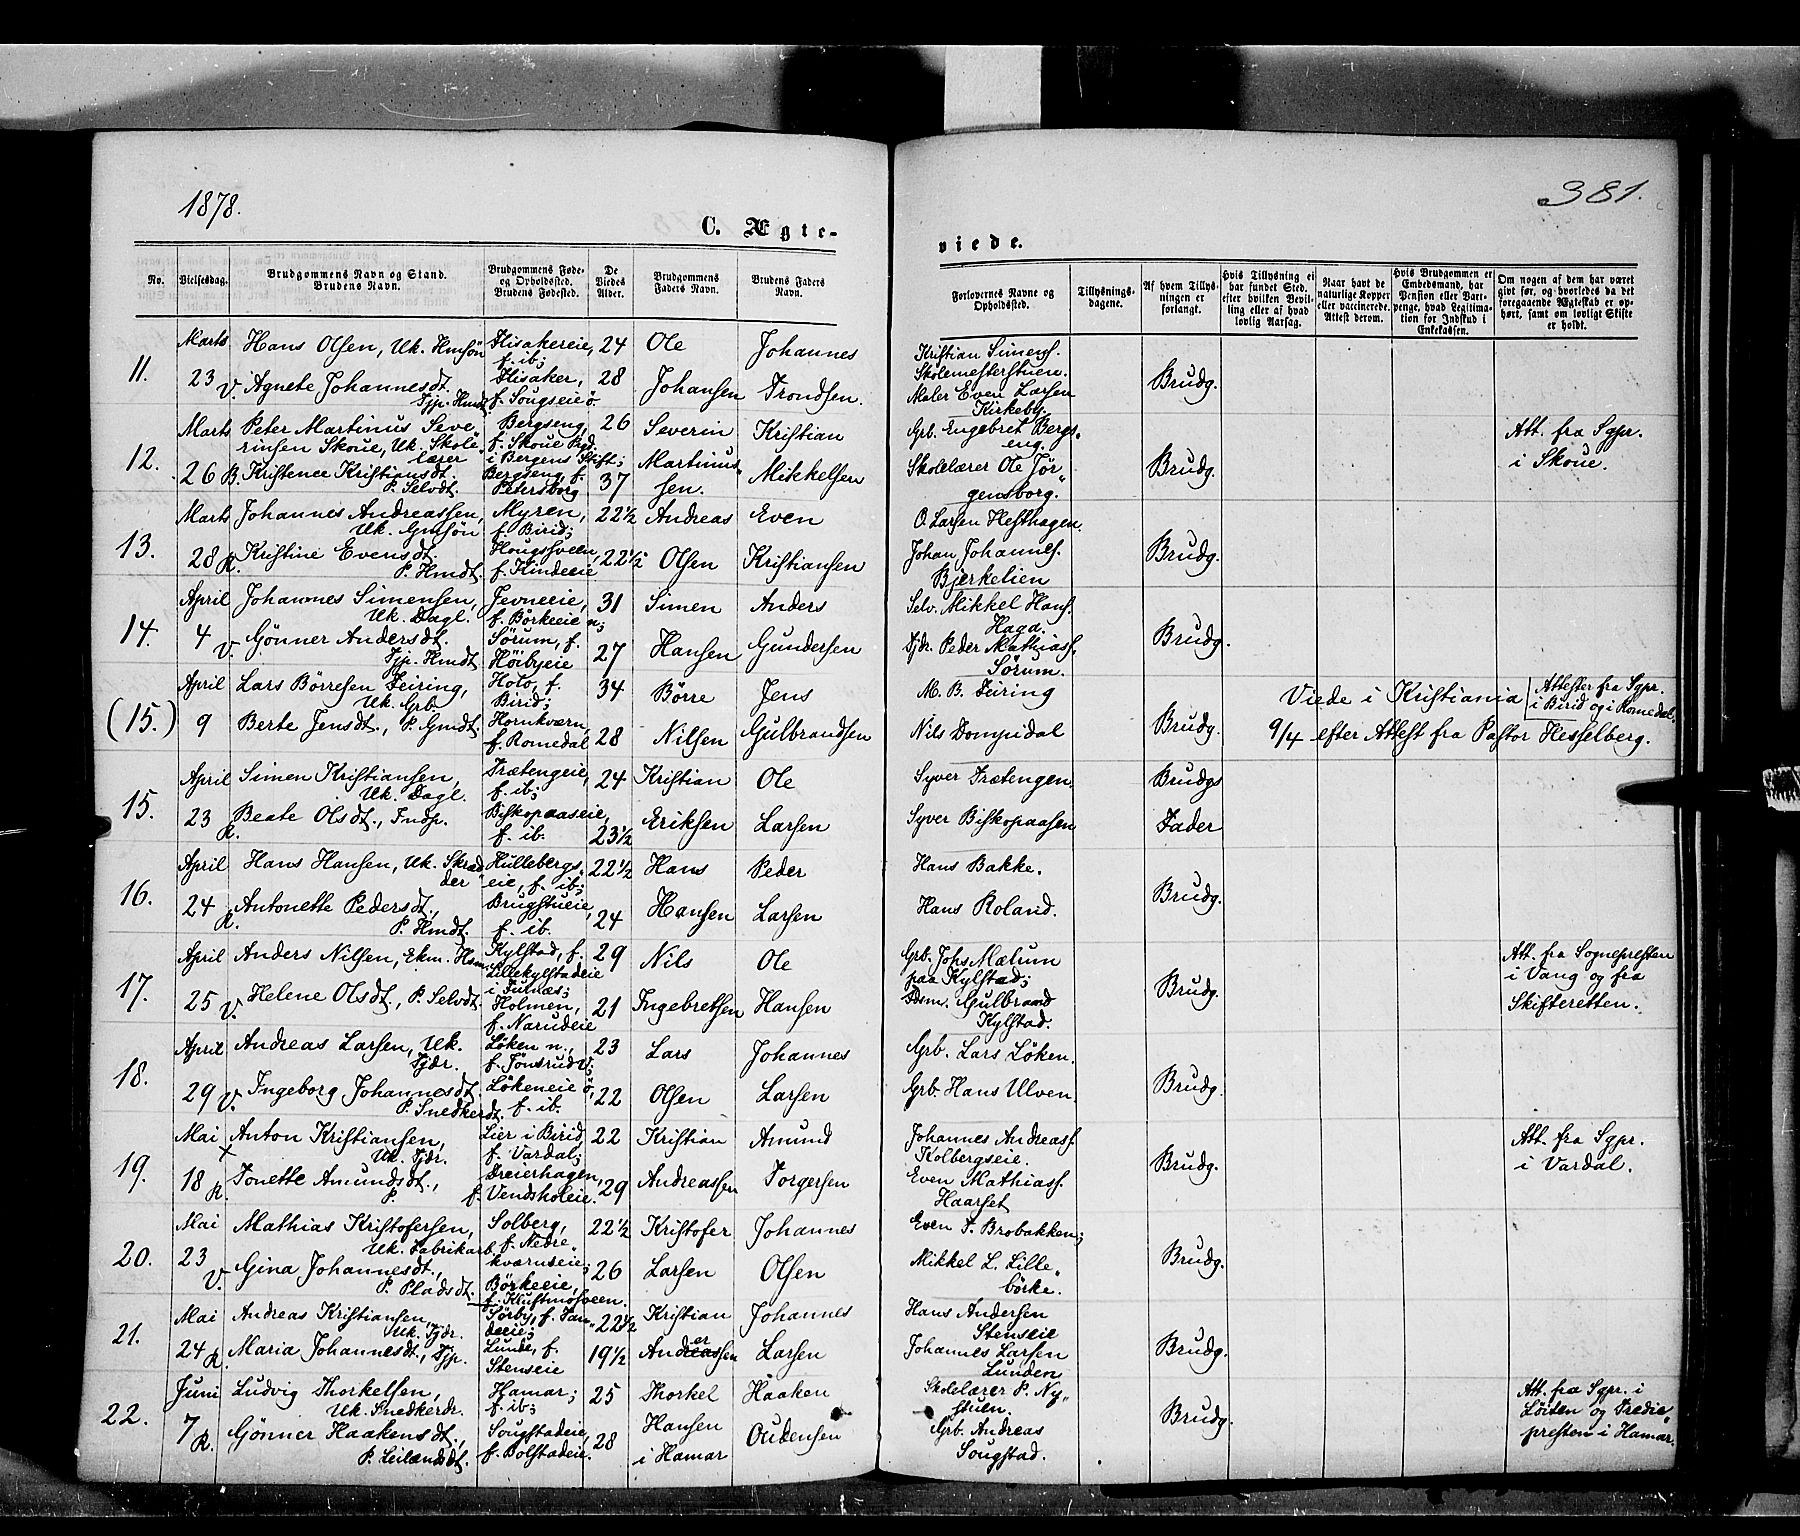 1878.
381.
C. Ægte-
viede.
No.
Vielsesdag.
Brudgommens Navn og Stand.
Brudens Navn.
Brudgommens Føde-
og Opholdssted.
Brudens Fødested.
De
Viedes
Alder.
Brudgommens
Faders Navn.
Brudens Faders
Navn.
Forlovernes Navne og
Opholdssted.
Tillysnings-
dagene.
Af hvem Tillys-
ningen er
forlangt.
Hvis Tillysning ei
har fundet Sted,
efter hvilken Bevil-
ling eller af hvad
lovlig Aarsag.
Naar havt de
naturlige Kopper
eller vaccinerede.
Attest derom.
Hvis Brudgommen er
Embedsmand, har
Pension eller Vart-
penge, hvad Legitima-
tion for Indskud i
Enkekassen.
Om nogen af dem har været
givt før, og hvorledes da det
foregaaende Ægteskab er op-
hørt, samt om lovligt Skifte
er holdt.
11.
Marts
23
V.
Hans Olsen, Uk. Hmsøn
Agnete Johannesdt.
Tjp. Hmdt.
Flisakereie,
f. ib;
Flisaker,
f. Sougseie ø.
24
28
Ole
Johansen
Johannes
Trondsen.
Kristian Simens.
Skolemesterstuen.
Maler Even Larsen
Kirkeby.
Brudg.
12.
Marts
26 B.
Peter Martinus Seve"
rinsen Skoue, Uk. Skole"
lærer
Kristence Kristiansdt.
P. Selvdt.
Bergseng,
f. Skoue Prgd.
i Bergens Stift;
Bergseng, f.
Petersborg
26
37
Severin
Martinus"
sen.
Kristian
Mikkelsen
Grb. Engebret Bergs"
eng.
Skolelærer Ole Jør"
gensborg.
Brudg.
Att. fra Sgpr.
i Skoue.
13.
Marts
28 R.
Johannes Andreassen,
Uk. Gmsøn
Kristine Evensdt.
P. Hmdt.
Myren,
f. Birid;
Hougsveen,
f. Kindeeie
22½
22½
Andreas
Olsen
Even
Kristiansen
O. Larsen Hesthagen.
Johan Johannes.
Bjerkelien
Brudg.
14.
April
4
V.
Johannes Simensen,
Uk. Dagl.
Gønner Andersdt.
Tjp. Hmdt.
Jevneeie,
f. Börkeeie n;
Sørum, f.
Høibyeie
31
27
Simen
Hansen
Anders
Gundersen
Selv. Mikkel Hans.
Haga.
Tjdr. Peder Mathiass.
Sørum.
Brudg.
(15.)
April
9
Lars Börresen Feiring,
Uk. Grb
Berte Jensdt., P. Gmdt.
Holo, f.
Birid;
Hornkværn,
f. Romedal
34
28
Börre
Nilsen
Jens
Gulbrandsen
M. B. Feiring
Nils Dompidal
Brudg.
Viede i Kristiania
9/4 efter Attest fra Pastor Hesselberg.
Attester fra Sgpr.
i Birid og i Romedal.
15.
April
23
R.
Simen Kristiansen,
Uk. Dagl.
Beate Olsdt., Indp.
Trætengeie,
f. ib;
Biskopaaseie,
f. ib.
24
23½
Kristian
Eriksen
Ole
Larsen
Syver Trætengen
Syver Biskopaasen
Brudgs
Fader
16.
April
24
R.
Hans Hansen, Uk. Skræd"
der
Antonette Pedersdt.,
P. Hmdt.
Hullebergs"
eie, f. ib;
Brugstueie,
f. ib.
22½
24
Hans
Hansen
Peder
Larsen
Hans Bakke.
Hans Roland.
Brudg.
17.
April
25
V.
Anders Nilsen, Ekm. Hsm.
Helene Olsdt., P. Selvdt.
Kylstad, f.
Lillekylstadeie
i Furnæs;
Holmen,
f. Narudeie
29
21
Nils
Ingebretsen
Ole
Hansen
Grb. Johs Mælum
paa Kylstad;
Gulbrand
Kylstad.
Brudg.
Att. fra Sognepresten
i Vang og fra
Skifteretten.
18.
April
29
V.
Andreas Larsen, Uk.
Tjdr.
Ingeborg Johannesdt.
P. Snedkerdt.
Løken n.,
f. Tønsrud v;
Løkeneie ø,
f. ib.
23
22
Lars
Olsen
Johannes
Larsen
Grb. Lars Løken.
Grb. Hans Ulven.
Brudg.
19.
Mai
18
R.
Anton Kristiansen,
Uk. Tjdr.
Tonette Amundsdt.,
P.
Lier i Birid,
f. Vardal;
Dreierhagen,
f. Vendsholeie.
22
29
Kristian
Andreassen
Amund
Torgersen
Johannes Andreass.
Kolbergseie.
Even Mathiass.
Haarset
Brudg.
Att. fra Sgpr.
i Vardal.
20.
Mai
23
V.
Mathias Kristofersen,
Uk. Fabrikarb.
Gina Johannesdt.,
P. Pladsdt.
Solberg,
f. Nedre"
kværnseie;
Börkeeie,
f. Krustmosveen.
22½
26
Kristofer
Larsen
Johannes
Olsen
Even T. Brobakken;
Mikkel L. Lille"
börke.
Brudg.
21.
Mai
24
R.
Andreas Kristiansen,
Uk. Tjdr.
Maria Johannesdt., Tjp.
Sørby, f. Tan"
deeie;
Lunde, f.
Stenseie
22½
19½
Kristian
Andersen
Johannes
Larsen
Hans Andersen
Stenseie
Johannes Larsen
Lunden
Brudg.
22.
Juni
7
R.
Ludvig Thorkelsen,
Uk. Snedkerdr.
Gønner Haakensdt.,
P. Leilændsdt.
Hamar;
f. ib;
Sougstadeie,
f. Dolstadeie.
25
28
Thorkel
Hansen
i Hamar
Haaken
Oudensen
Skolelærer P. Ny"
stuen.
Grb. Andreas
Sougstad.
Brudg.
Att. fra Sgpr. i
Løiten og Predie"
presten i Hamar.